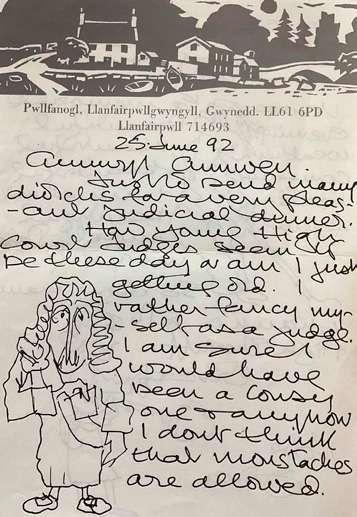 Pwllfanogl, Llanfairpwllgwyngyll, Gwynedd. LL61 6PD
Llanfairpwll 714693
25 June 92
Annwyl Annwen.
Just to send many
diolchs for a very pleas-
-ant judicial dinner.
How young High
Court Judges seem to
be these days or am I just
getting old. I
rather fancy my-
-self as a judge.
I am sure I
would have
been a
one & anyhow
I dont think
that moustaches
are allowed.